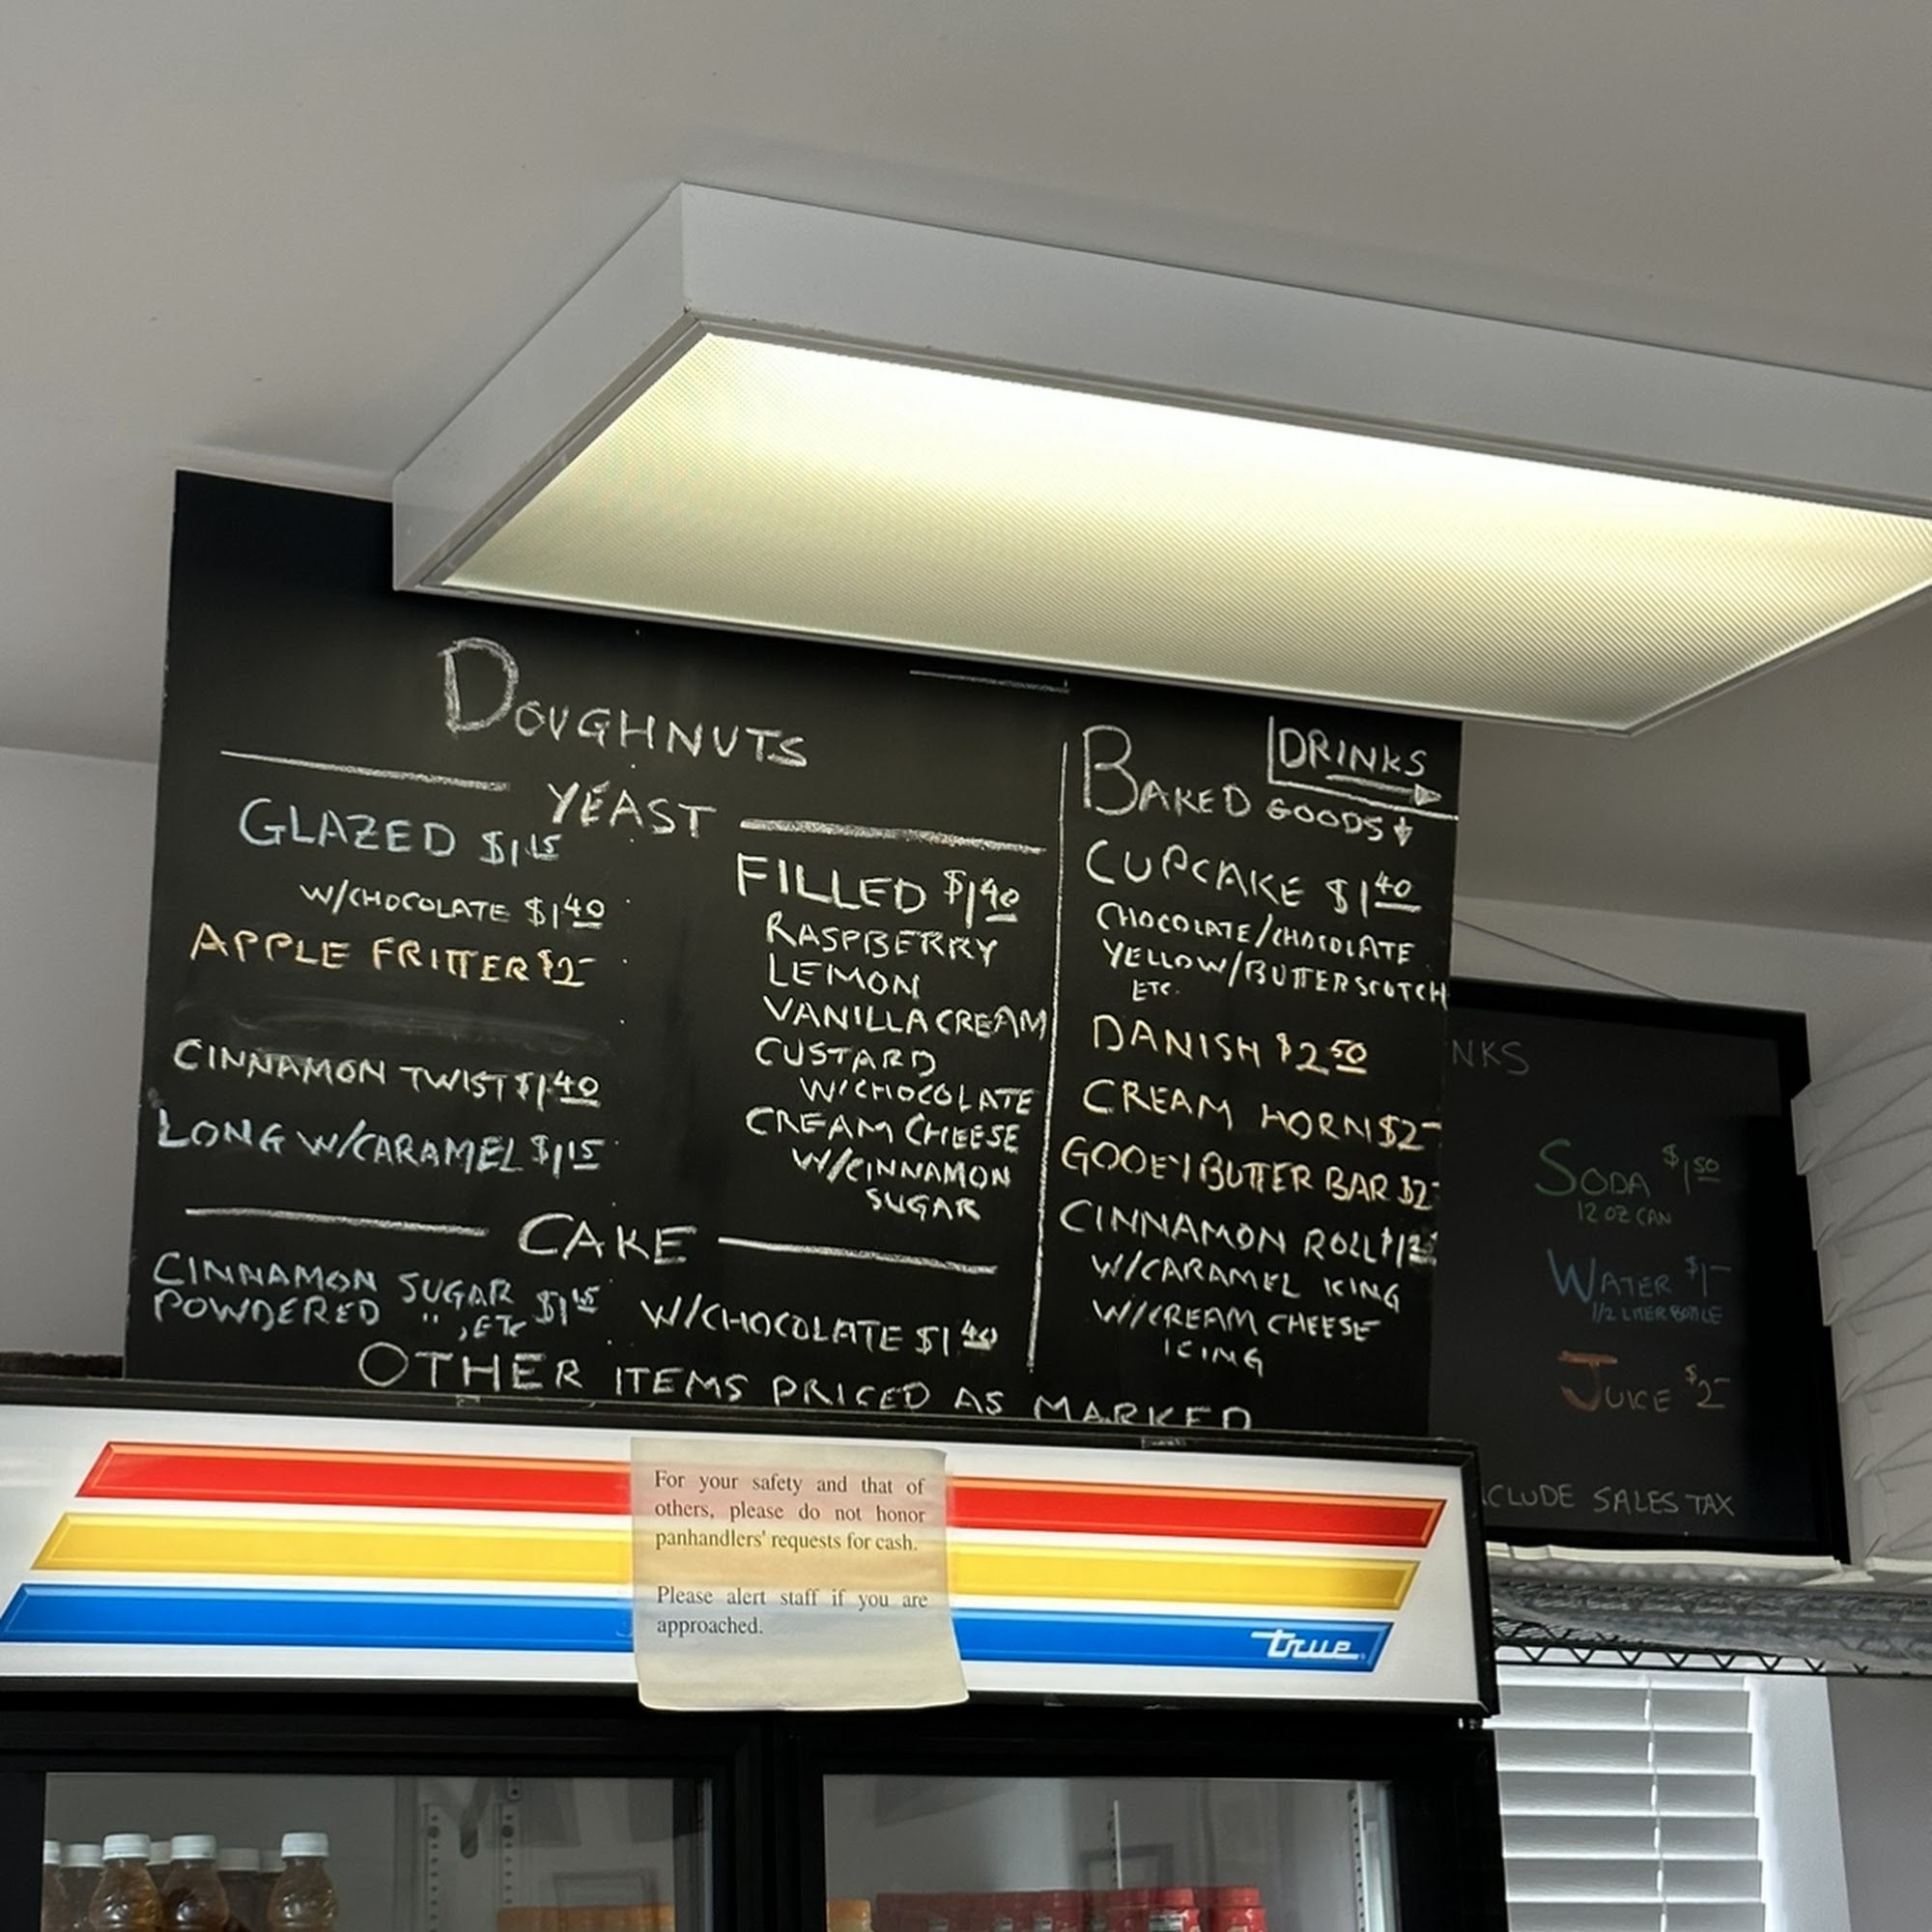 DOUGHNUTS
YEAST
GLAZED $1.15
W/CHOCOLATE $1.40
APPLE FRITTER $2-
CINNAMON TWIST $1.40
LONG W/CARAMEL $1.15
FILLED $1.40
RASPBERRY
LEMON
VANILLA CREAM
CUSTARD
W/CHOCOLATE
CREAM CHEESE
W/CINNAMON
SUGAR
CAKE
CINNAMON SUGAR $1.15
POWDERED " , ETC
W/CHOCOLATE $1.40
OTHER ITEMS PRICED AS MARKED
DRINKS →
BAKED GOODS ↓
CUPCAKE $1.40
CHOCOLATE/CHOCOLATE
YELLOW/BUTTERSCOTCH
ETC.
DANISH $2.50
CREAM HORN $2-
GOOEY BUTTER BAR $2-
CINNAMON ROLL
W/CARAMEL ICING
W/CREAM CHEESE
ICING
NKS
SODA $1.50
12 OZ CAN
WATER $1-
1/2 LITER BOTTLE
JUICE $2-
CLUDE SALES TAX
For your safety and that of
others, please do not honor
panhandlers' requests for cash.
Please alert staff if you are
approached.
true